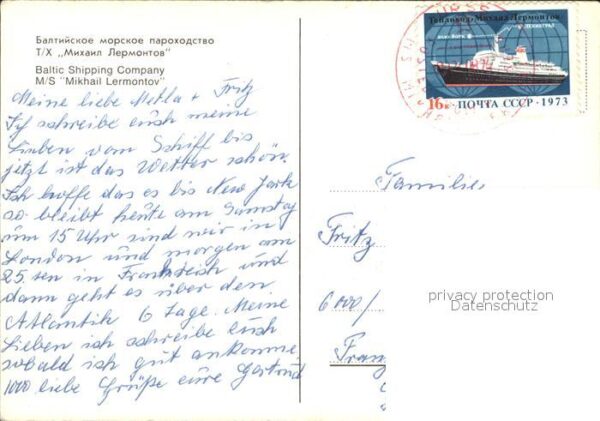 Балтийское морское пароходство
Т/Х „Михаил Лермонтов"
Baltic Shipping Company
M/S "Mikhail Lermontov"
Meine liebe Metla + Fritz
Ich schreibe euch meine
Lieben vom Schiff bis
jetzt ist das Wetter schön.
Ich hoffe das es bis New Jork
so bleibt heute am Samstag
um 15 Uhr sind wir in
London und morgen am
25.ten in Frankreich und
dann geht es über den
Atlantik 6 Tage. Meine
Lieben ich schreibe euch
sobald ich gut ankomme
1000 liebe Grüße eure Gertrud
Теплоход „Михаил Лермонтов"
НЬЮ-ЙОРК
ЛЕНИНГРАД
16к ПОЧТА СССР · 1973
Familie
Fritz
6000/
Fran
privacy protection
Datenschutz